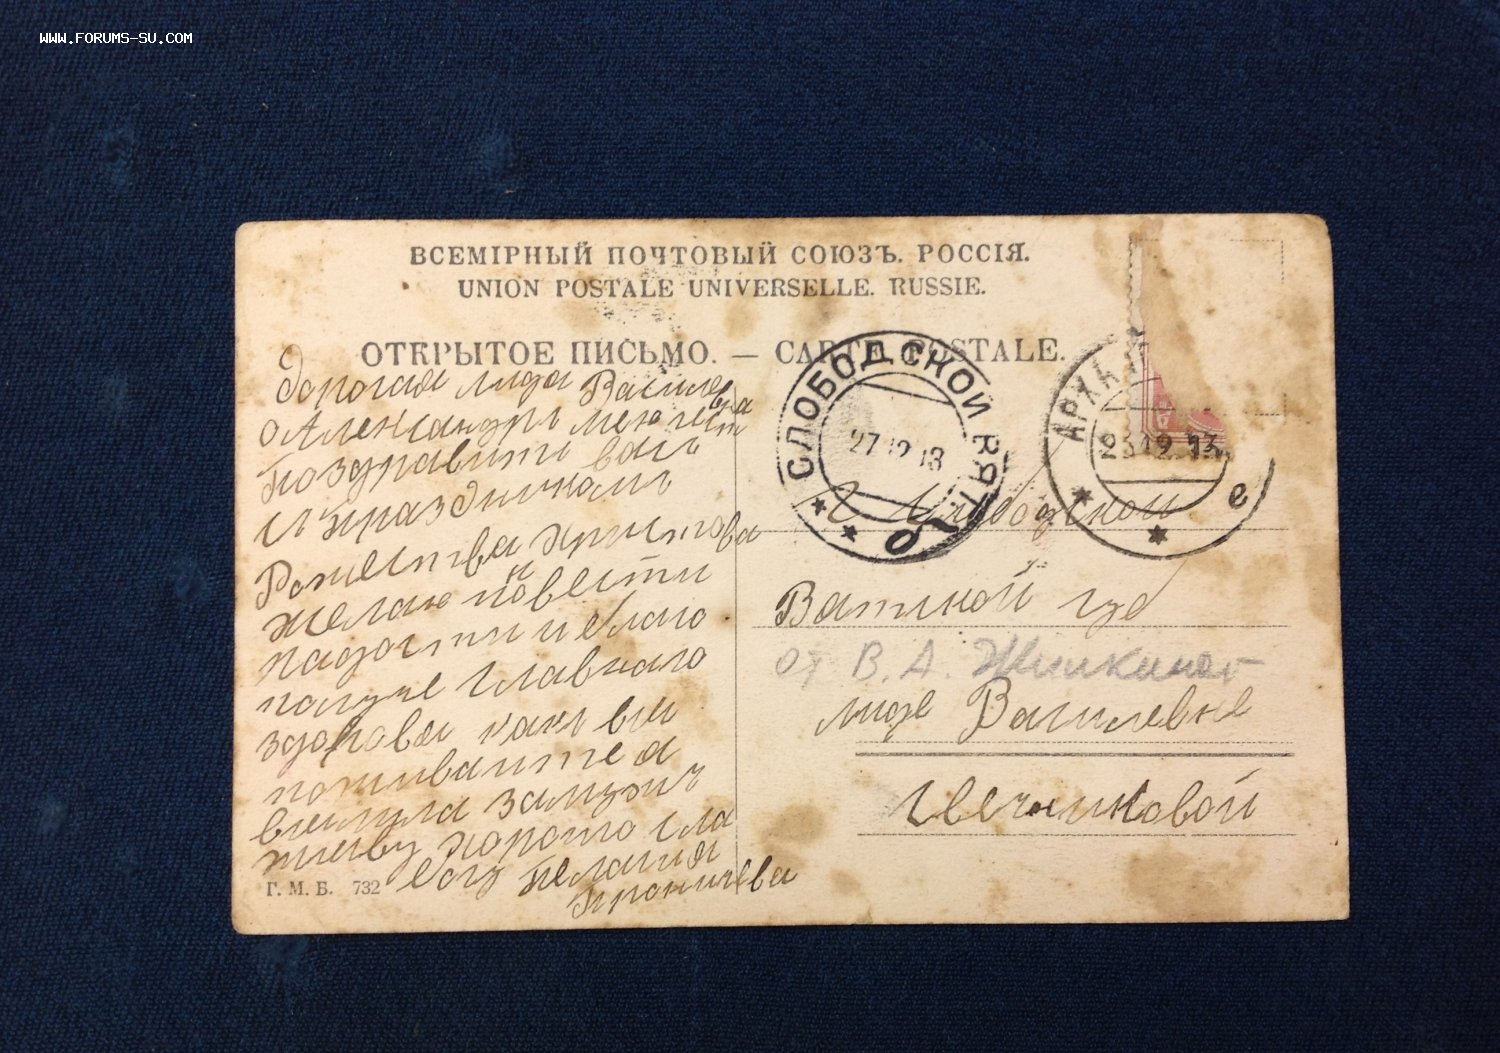 WWW.FORUMS-SU.COM
ВСЕМІРНЫЙ ПОЧТОВЫЙ СОЮЗЪ. РОССІЯ.
UNION POSTALE UNIVERSELLE. RUSSIE.
ОТКРЫТОЕ ПИСЬМО. — CARTE POSTALE.
Дорогая лида Василевна
Александръ
поздравить васъ
праздникомъ
Рожества Христова
желаю повести
радости и благо
главного
здоровя какъ вы
поживаите я
вышла замужъ
живу хорошо сла
богу Пелагия
Г. М. Б. 732
СЛОБОДСКОЙ ВЯТ.
27 12 13
б
АРХАН
23 12 13
е
Г Слободской
Вятской гу
от В. А. Жишкиной
лиде Василевне
Свечниковой